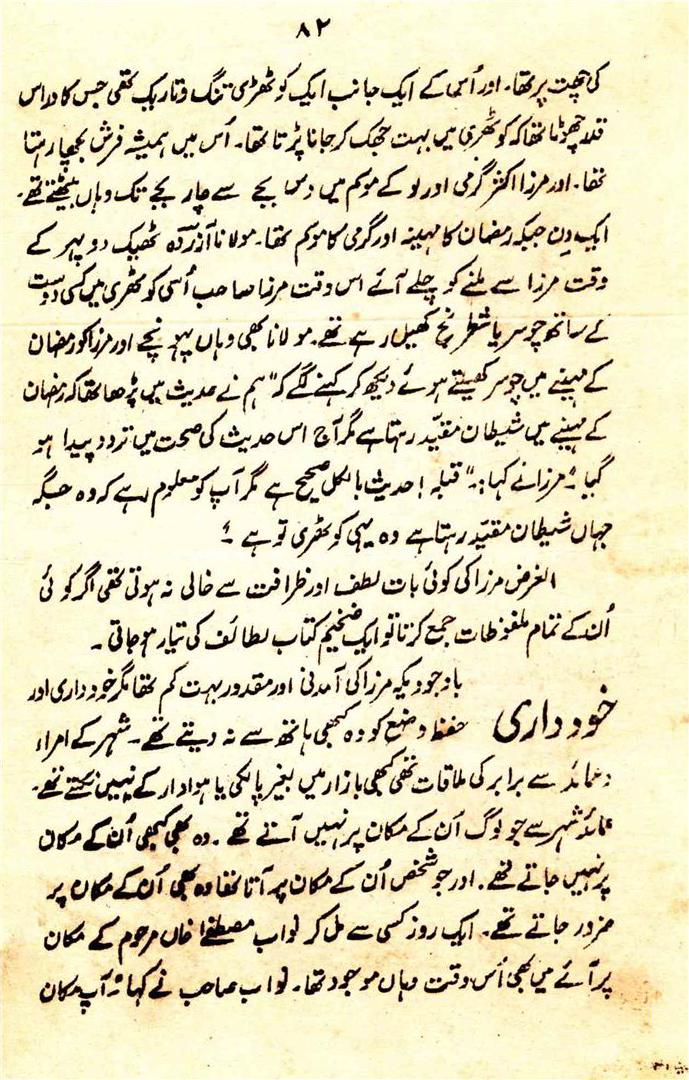 ۸۲
کی چھت پر تھا۔ اور اُس کے ایک جانب ایک کوٹھڑی تنگ و تاریک تھی جس کا در اس
قدر چھوٹا تھا کہ کوٹھری میں بہت جھک کر جانا پڑتا تھا۔ اُس میں ہمیشہ فرش بچھا رہتا
تھا۔ اور مرزا اکثر گرمی اور لو کے موسم میں دس بجے سے چار بجے تک وہاں بیٹھتے تھے۔
ایک دن جبکہ رمضان کا مہینہ اور گرمی کا موسم تھا۔ مولانا آزردہ ٹھیک دوپہر کے
وقت مرزا سے ملنے کو چلے آئے اس وقت مرزا صاحب اُسی کوٹھری میں کسی دوست
کے ساتھ چوسر یا شطرنج کھیل رہے تھے۔ مولانا بھی وہاں پہونچے اور مرزا کو رمضان
کے مہینے میں چوسر کھیلتے ہوئے دیکھ کر کہنے لگے کہ "ہم نے حدیث میں پڑھا تھا کہ رمضان
کے مہینے میں شیطان مقیّد رہتا ہے مگر آج اس حدیث کی صحت میں تردد پیدا ہو
گیا"۔ مرزا نے کہا:۔ "قبلہ! حدیث بالکل صحیح ہے مگر آپ کو معلوم رہے کہ وہ جگہ
جہاں شیطان مقیّد رہتا ہے وہ یہی کوٹھری تو ہے۔"
الغرض مرزا کی کوئی بات لطف اور ظرافت سے خالی نہ ہوتی تھی اگر کوئی
اُن کے تمام ملفوظات جمع کرتا تو ایک ضخیم کتاب لطائف کی تیار ہو جاتی۔
خودداری
باوجودیکہ مرزا کی آمدنی اور مقدور بہت کم تھا مگر خودداری اور
حفظ وضع کو وہ کبھی ہاتھ سے نہ دیتے تھے۔ شہر کے امراء
و عمائد سے برابر کی ملاقات تھی کبھی بازار میں بغیر پالکی یا ہوادار کے نہیں نکلتے تھے۔
عمائدِ شہر سے جو لوگ اُن کے مکان پر نہیں آتے تھے۔ وہ بھی کبھی اُن کے مکان
پر نہیں جاتے تھے۔ اور جو شخص اُن کے مکان پر آتا تھا وہ بھی اُن کے مکان پر
ضرور جاتے تھے۔ ایک روز کسی سے مل کر نواب مصطفےٰ خاں مرحوم کے مکان
پر آئے میں بھی اُس وقت وہاں موجود تھا۔ نواب صاحب نے کہا "۔ آپ مکان